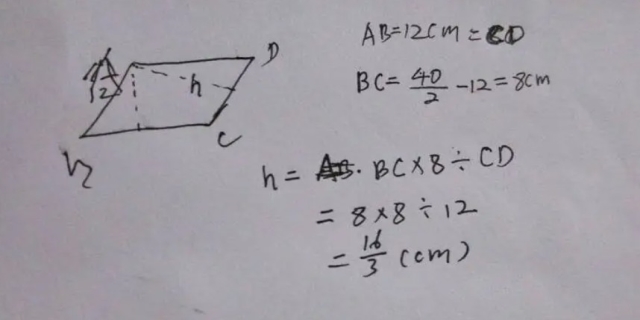 A
12
D
h
B
C
AB=12cm=CD
BC=40/2-12=8cm
h=BC×8÷CD
=8×8÷12
=16/3(cm)